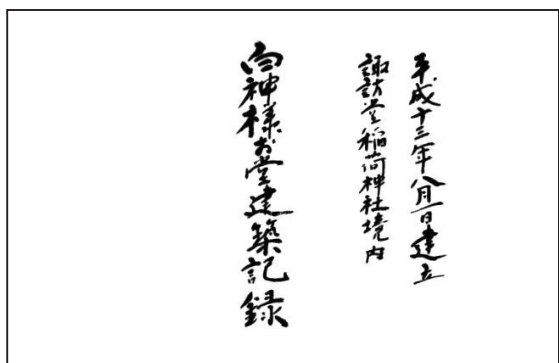 平成十三年八月一日建立
諏訪堂稲荷神社境内
白神様お堂建築記録